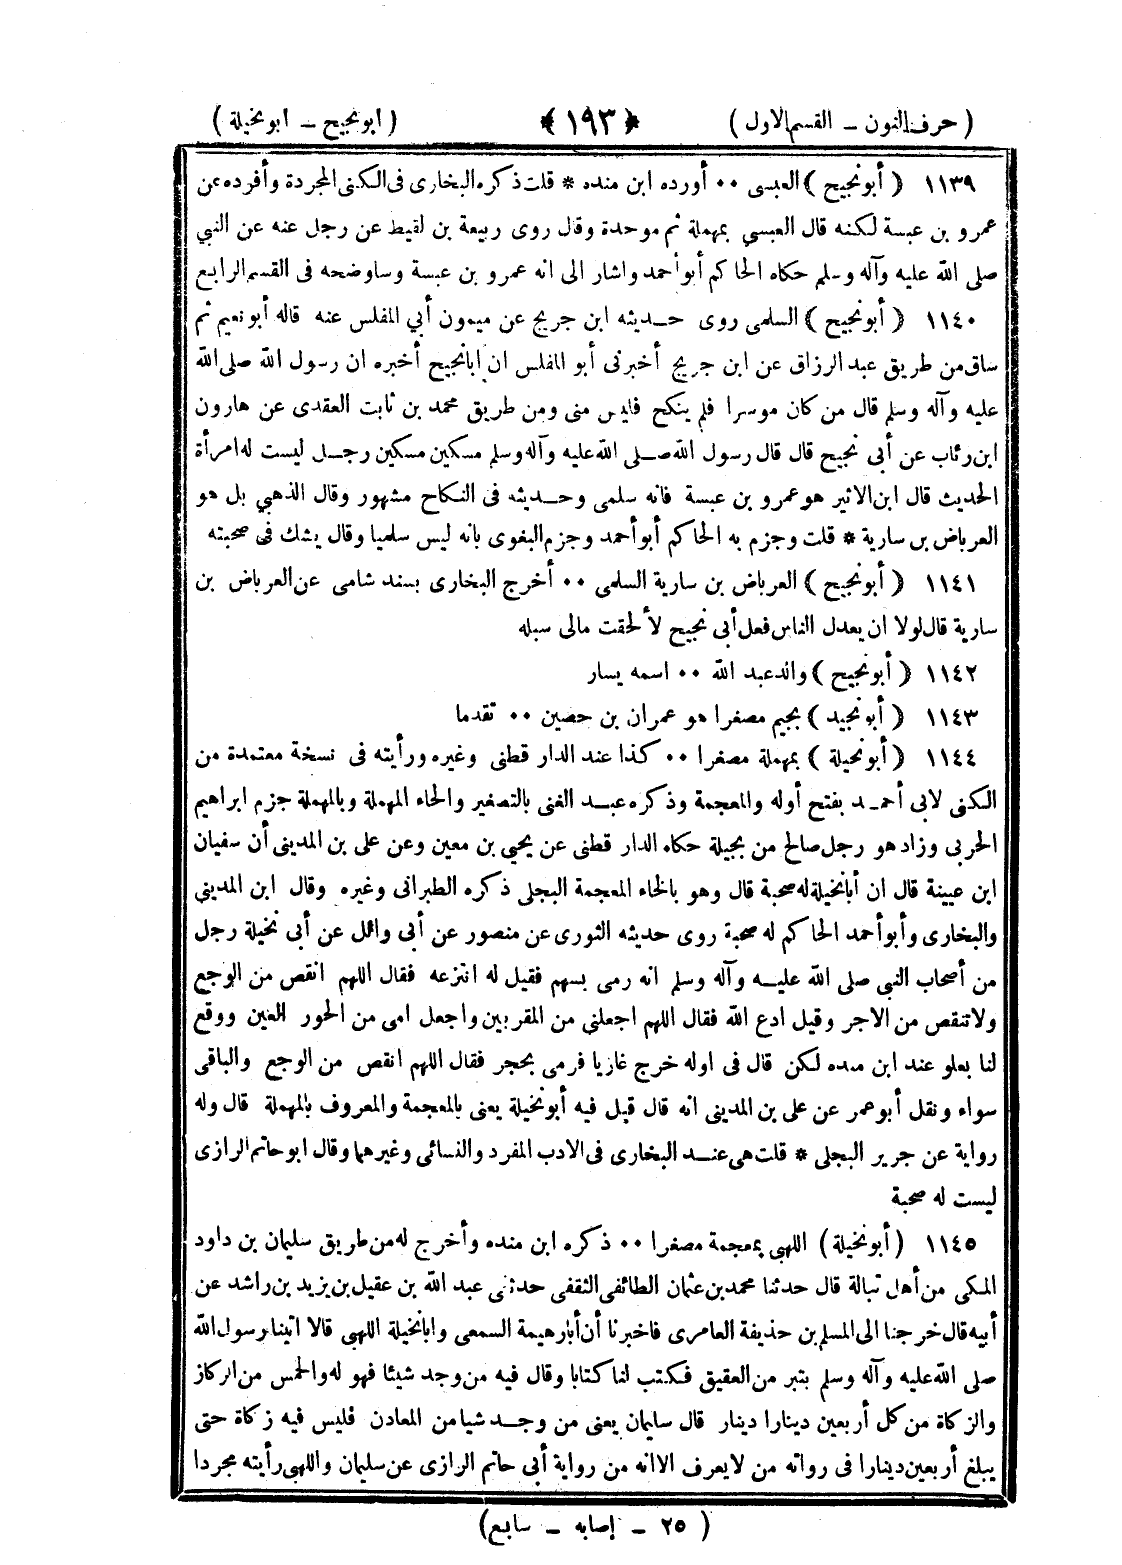 ( حرف النون ــ القسم الاول ) ﴿ ١٩٣ ﴾ ( ابو نجيح ــ ابو نخيلة )
١١٣٩ ( أبو نجيح ) العبسى ٠٠ أورده ابن منده * قلت ذكره البخارى فى الكنى المجردة وأفرده عن
عمرو بن عبسة لكنه قال العبسي بمهملة ثم موحدة وقال روى ربيعة بن لقيط عن رجل عنه عن النبي
صلى الله عليه وآله وسلم حكاه الحاكم أبو أحمد واشار الى انه عمرو بن عبسة وساوضحه فى القسم الرابع
١١٤٠ ( أبو نجيح ) السلمى روى حديثه ابن جريج عن ميمون أبي المفلس عنه قاله أبو نعيم ثم
ساق من طريق عبد الرزاق عن ابن جريج أخبرنى أبو المفلس ان ابا نجيح أخبره ان رسول الله صلى الله
عليه وآله وسلم قال من كان موسرا فلم ينكح فليس منى ومن طريق محمد بن ثابت العقدى عن هارون
ابن رئاب عن أبى نجيح قال قال رسول الله صلى الله عليه وآله وسلم مسكين مسكين رجل ليست له امرأة
الحديث قال ابن الاثير هو عمرو بن عبسة فانه سلمى وحديثه فى النكاح مشهور وقال الذهبي بل هو
العرباض بن سارية * قلت وجزم به الحاكم أبو أحمد وجزم البغوى بانه ليس سلميا وقال يشك فى صحبته
١١٤١ ( أبو نجيح ) العرباض بن سارية السلمى ٠٠ أخرج البخارى بسند شامى عن العرباض بن
سارية قال لولا ان يعدل الناس فعل أبى نجيح لألحقت مالى سبله
١١٤٢ ( أبو نجيح ) والد عبد الله ٠٠ اسمه يسار
١١٤٣ ( أبو نجيد ) بجيم مصغرا هو عمران بن حصين ٠٠ تقدما
١١٤٤ ( أبو نحيلة ) بمهملة مصغرا ٠٠ كذا عند الدار قطنى وغيره ورأيته فى نسخة معتمدة من
الكنى لابى أحمد بفتح أوله والمعجمة وذكره عبد الغنى بالتصغير والحاء المهملة وبالمهملة جزم ابراهيم
الحربى وزاد هو رجل صالح من بجيلة حكاه الدار قطنى عن يحيى بن معين وعن على بن المدينى أن سفيان
ابن عيينة قال ان أبا نخيلة له صحبة قال وهو بالخاء المعجمة البجلى ذكره الطبرانى وغيره وقال ابن المديني
والبخارى وأبو أحمد الحاكم له صحبة روى حديثه الثورى عن منصور عن أبى وائل عن أبى نخيلة رجل
من أصحاب النبي صلى الله عليه وآله وسلم انه رمى بسهم فقيل له انتزعه فقال اللهم انقص من الوجع
ولا تنقص من الاجر وقيل ادع الله فقال اللهم اجعلني من المقربين واجعل امى من الحور العين ووقع
لنا بعلو عند ابن منده لكن قال فى اوله خرج غازيا فرمى بحجر فقال اللهم انقص من الوجع والباقى
سواء ونقل أبو عمر عن على بن المدينى انه قال قيل فيه أبو نخيلة يعنى بالمعجمة والمعروف بالمهملة قال وله
رواية عن جرير البجلى * قلت هى عند البخارى فى الادب المفرد والنسائى وغيرهما وقال ابو حاتم الرازى
ليست له صحبة
١١٤٥ ( أبو نخيلة ) اللهبي بمعجمة مصغرا ٠٠ ذكره ابن منده وأخرج له من طريق سليمان بن داود
المكى من أهل تبالة قال حدثنا محمد بن عثمان الطائفى الثقفى حدثنى عبد الله بن عقيل بن يزيد بن راشد عن
أبيه قال خرجنا الى المسلم بن حذيفة العامرى فاخبرنا أن أبا رهيمة السمعى وابا نخيلة اللهبي قالا اتينا رسول الله
صلى الله عليه وآله وسلم بتبر من العقيق فكتب لنا كتابا وقال فيه من وجد شيئا فهو له والخمس من الركاز
والزكاة من كل أربعين دينارا دينار قال سليمان يعنى من وجد شيا من المعادن فليس فيه زكاة حتى
يبلغ أربعين دينارا فى رواته من لا يعرف الا انه من رواية أبى حاتم الرازى عن سليمان واللهبى رأيته مجردا
( ٢٥ ــ إصابه ــ سابع )